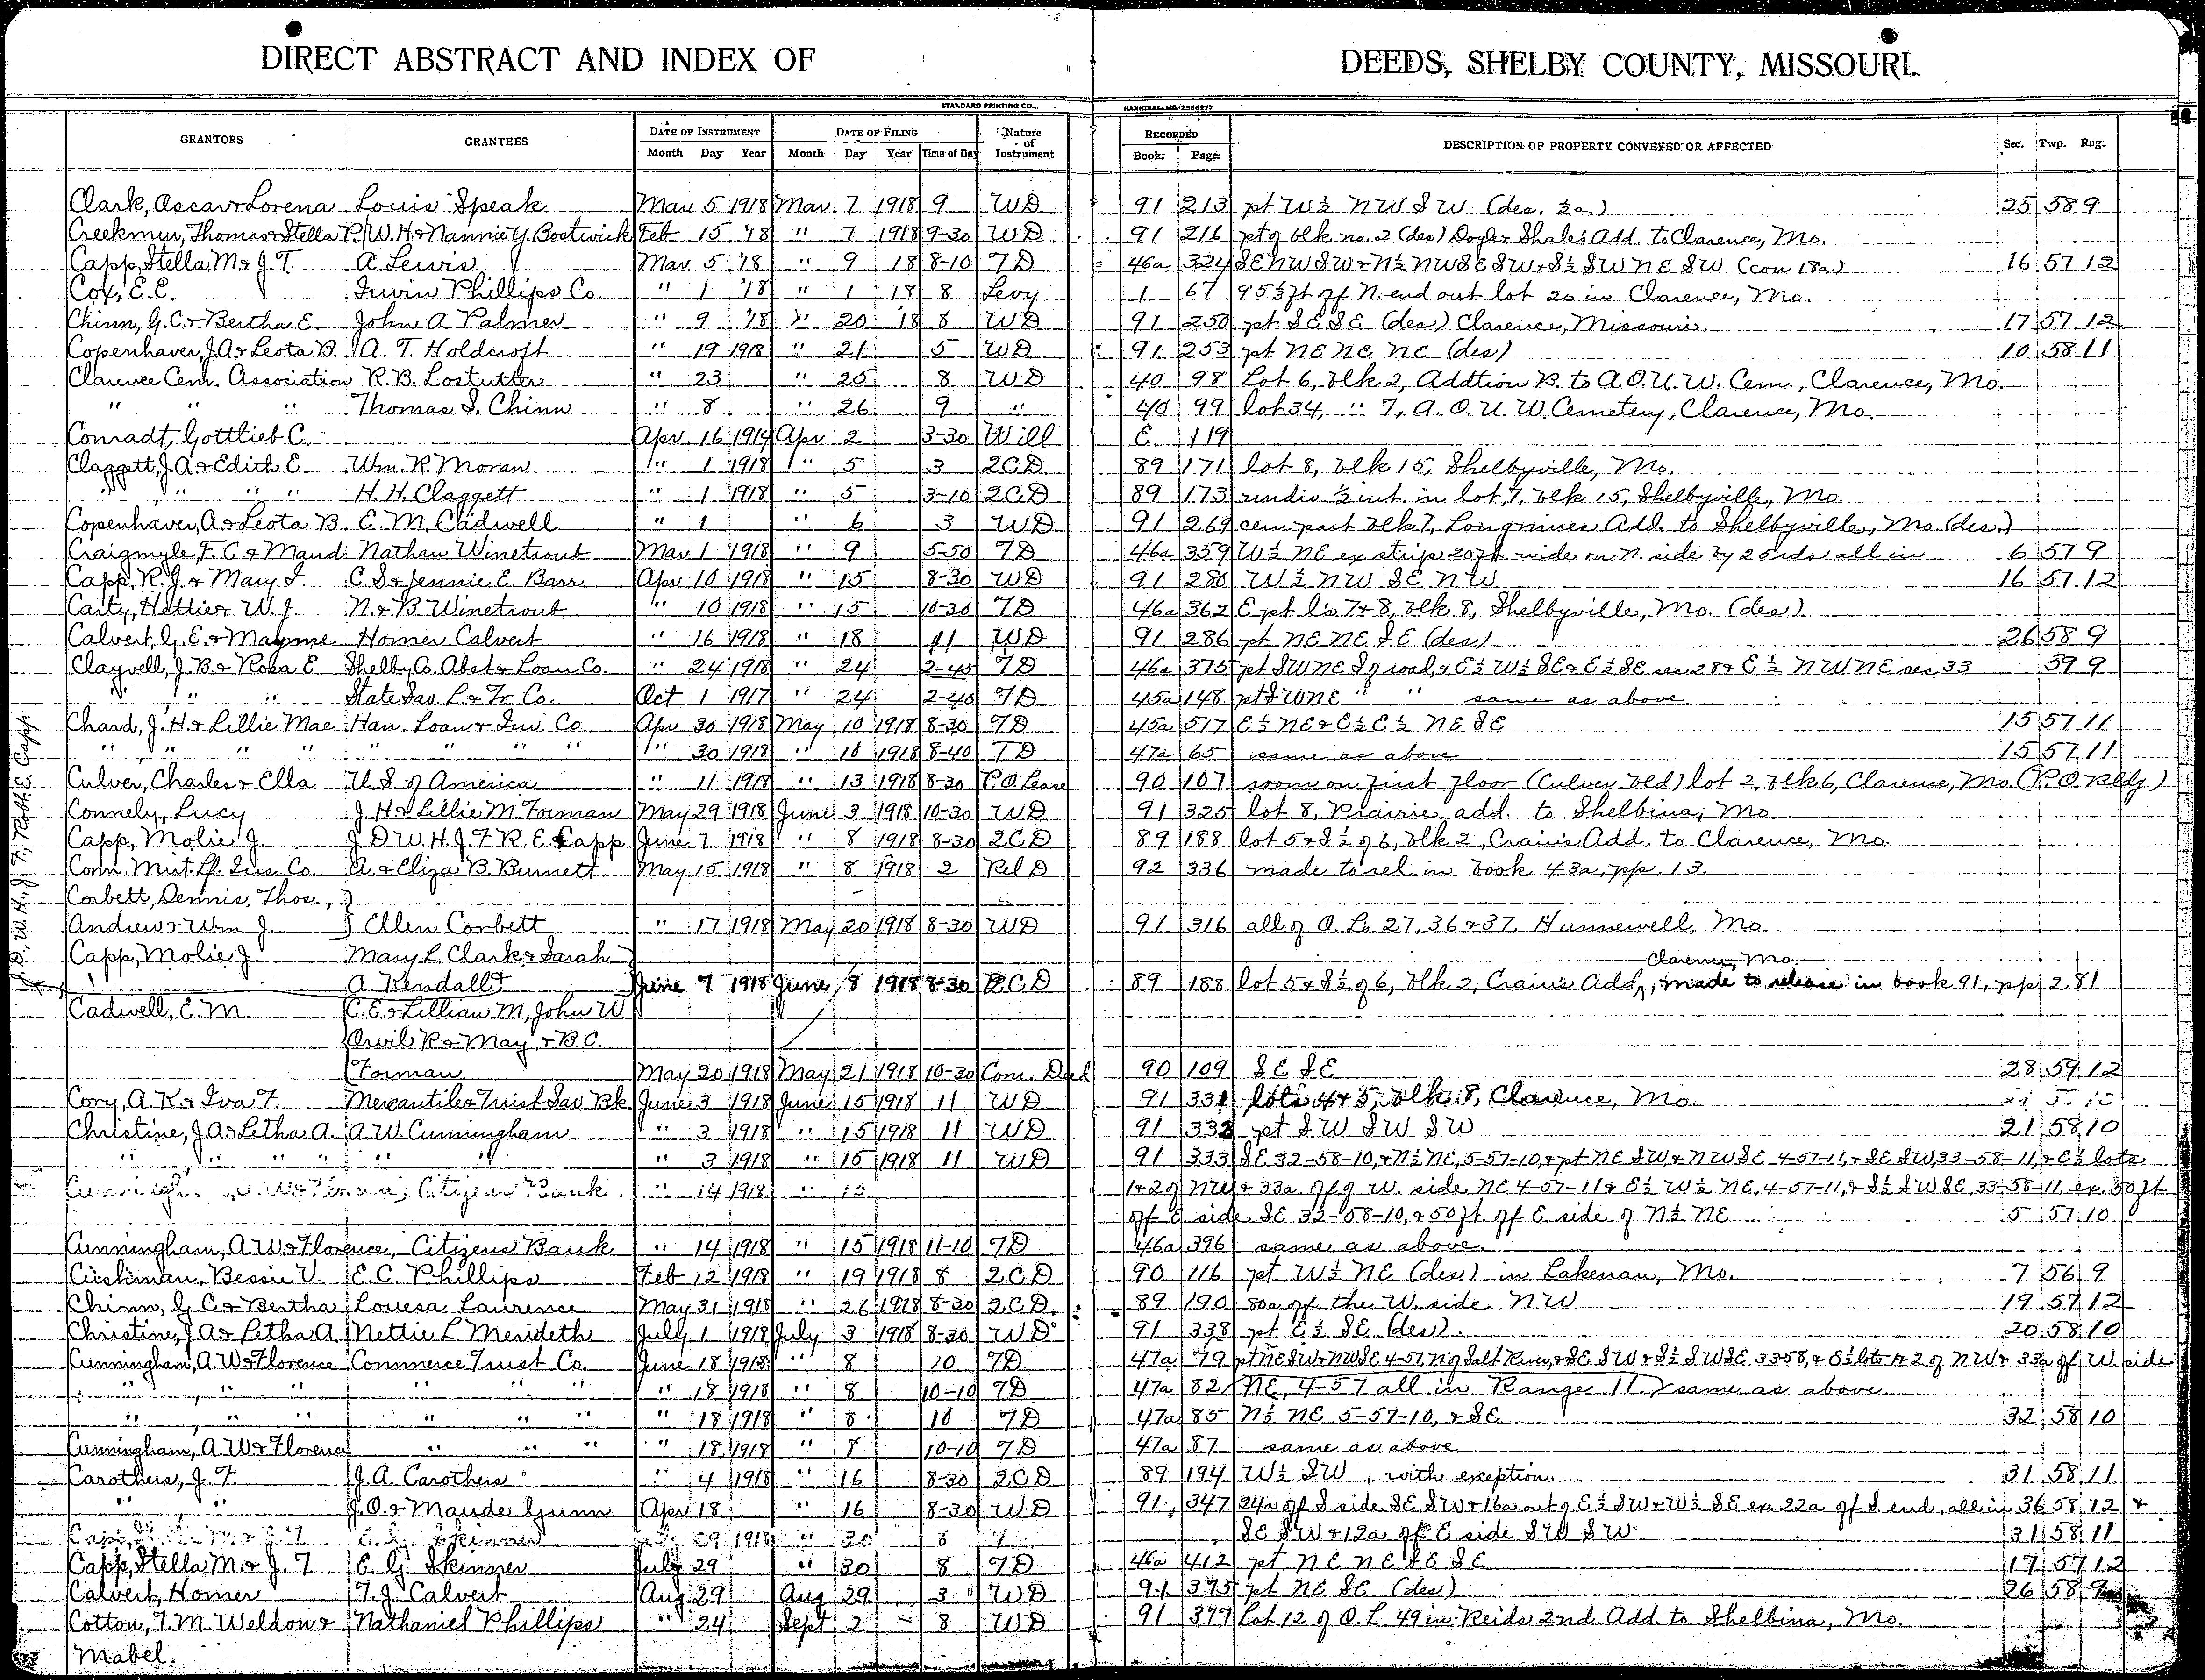 DIRECT ABSTRACT AND INDEX OF DEEDS, SHELBY COUNTY, MISSOURI.
STANDARD PRINTING CO., HANNIBAL, MO.
GRANTORS GRANTEES DATE OF INSTRUMENT DATE OF FILING Nature of Instrument RECORDED DESCRIPTION OF PROPERTY CONVEYED OR AFFECTED Sec. Twp. Rng.
Month Day Year Month Day Year Time of Day Book Page
Clark, Ascar & Lorena Louis Speak Mar 5 1918 Mar 7 1918 9 WD 91 213 pt W½ NW SW (des. ½a.) 25 58 9
Creekmur, Thomas & Stella P. W. H. & Nannie Y. Bostwick Feb 15 '18 " 7 1918 9-30 WD 91 216 pt of blk no. 2 (des) Doyle & Shale's Add. to Clarence, Mo.
Capp, Stella M. & J. T. A. Lewis Mar 5 '18 " 9 18 8-10 TD 46a 324 SE NW SW & N½ NW SE SW & S½ SW NE SW (con 18a) 16 57 12
Cox, E. E. Irwin Phillips Co. " 1 '18 " 1 18 8 Levy 1 67 95½ ft off N. end out lot 20 in Clarence, Mo.
Chinn, G. C. & Bertha E. John A. Palmer " 9 '18 " 20 '18 8 WD 91 250 pt SE SE (des) Clarence, Missouri. 17 57 12
Copenhaver, J. A. & Leota B. A. T. Holdcroft " 19 1918 " 21 5 WD 91 253 pt NE NE NE (des) 10 58 11
Clarence Cem. Association R. B. Lostutter " 23 " 25 8 WD 40 98 Lot 6, blk 2, Addtion B. to A. O. U. W. Cem., Clarence, Mo.
" " " Thomas S. Chinn " 8 " 26 9 " 40 99 lot 34, " 7, A. O. U. W. Cemetery, Clarence, Mo.
Conradt, Gottlieb C. Apr 16 1914 Apr 2 3-30 Will E 119
Claggett, J. A. & Edith E. Wm. R. Moran " 1 1918 " 5 3 2CD 89 171 lot 8, blk 15, Shelbyville, Mo.
" " " " H. H. Claggett " 1 1918 " 5 3-10 2CD 89 173 undiv ½ int. in lot 7, blk 15, Shelbyville, Mo.
Copenhaver, A. & Leota B. E. M. Cadwell " 1 " 6 3 WD 91 269 cen. part blk 7, Longmires Add. to Shelbyville, Mo (des.)
Craigmyle, F. C. & Maud Nathan Winetroub Mar 1 1918 " 9 5-50 TD 46a 359 W½ NE ex strip 20 ft. wide on N. side by 25 rds all in 6 57 9
Capp, R. J. & Mary I. C. S. & Jennie E. Barr Apr 10 1918 " 15 8-30 WD 91 280 W½ NW SE NW 16 57 12
Carty, Hattie & W. J. N. & B. Winetroub " 10 1918 " 15 10-30 TD 46a 362 E pt l's 7 & 8, blk 8, Shelbyville, Mo. (des)
Calvert, G. E. & Mayme Homer Calvert " 16 1918 " 18 11 WD 91 286 pt NE NE SE (des) 26 58 9
Clayvell, J. B. & Rosa E. Shelby Co. Abst & Loan Co. " 24 1918 " 24 2-45 TD 46a 375 pt SW NE S of road, & E½ W½ SE & E½ SE sec 28 & E½ NW NE sec. 33 59 9
" " " State Sav. L. & Tr. Co. Oct 1 1917 " 24 2-40 TD 45a 148 pt SW NE " " same as above
Chard, J. H. & Lillie Mae Han. Loan & Inv. Co Apr 30 1918 May 10 1918 8-30 TD 45a 517 E½ NE & E½ E½ NE SE 15 57 11
" " " " " " " " " 30 1918 " 10 1918 8-40 TD 47a 65 same as above 15 57 11
Culver, Charles & Ella U. S. of America " 11 1918 " 13 1918 8-30 P.O. Lease 90 107 room on first floor (Culver bld) lot 2, blk 6, Clarence, Mo. (P.O. Bldg)
Connely, Lucy J. H. & Lillie M. Forman May 29 1918 June 3 1918 10-30 WD 91 325 lot 8, Prairie add. to Shelbina, Mo.
Capp, Molie J. J D W. H. J. F. R. E. Capp June 7 1918 " 8 1918 8-30 2CD 89 188 lot 5 & S½ of 6, blk 2, Crain's Add. to Clarence, Mo.
Conn. Mut. Lf. Ins. Co. A. & Eliza B. Burnett May 15 1918 " 8 1918 2 Rel D 92 336 made to rel in book 43a, pp. 13.
Corbett, Dennis, Thos.,
Andrew & Wm J. Ellen Corbett " 17 1918 May 20 1918 8-30 WD 91 316 all of O. Ls. 27, 36 & 37, Hunnewell, Mo
Capp, Molie J. Mary L. Clark & Sarah
Clarence, Mo.
A. Kendall June 7 1918 June 8 1918 8-30 2CD 89 188 lot 5 & S½ of 6, blk 2, Crain's Add, made to release in book 91, pp 281
J. D., W. H., J. F., Robt. E. Capp
Cadwell, E. M. C. E. & Lillian M, John W
Orvil R & May, & B. C.
Forman May 20 1918 May 21 1918 10-30 Con. Deed 90 109 SE SE 28 59 12
Cory, A. K. & Iva F. Mercantile & Trust Sav Bk. June 3 1918 June 15 1918 11 WD 91 331 lots 4 & 5, blk 8, Clarence, Mo.
Christine, J. A. & Letha A. A. W. Cunningham " 3 1918 " 15 1918 11 WD 91 332 pt SW SW SW 21 58 10
" " " " " " " 3 1918 " 15 1918 11 WD 91 333 SE 32-58-10, & N½ NE, 5-57-10, & pt NE SW & NW SE 4-57-11, & SE SW, 33-58-11, & E½ lots
Citizens Bank " 14 1918 " 15 1 & 2 of NW & 33a off of W. side NE 4-57-11 & E½ W½ NE, 4-57-11, & S½ SW SE, 33-58-11 ex. 50 ft
off E side SE 32-58-10, & 50 ft. off E side of N½ NE 5 57 10
Cunningham, A. W. & Florence, Citizens Bank " 14 1918 " 15 1918 11-10 TD 46a 396 same as above.
Cushman, Bessie V. E. C. Phillips Feb 12 1918 " 19 1918 8 2CD 90 116 pt W½ NE (des) in Lakenan, Mo. 7 56 9
Chinn, G. C. & Bertha Louesa Laurence May 31 1918 " 26 1918 8-30 2CD 89 190 80a off the W. side NW 19 57 12
Christine, J. A. & Letha A. Nettie L Merideth July 1 1918 July 3 1918 8-30 WD 91 338 pt E½ SE (des). 20 58 10
Cunningham, A. W. & Florence Commerce Trust Co. June 18 1918 " 8 10 TD 47a 79 pt NE SW & NW SE 4-57, N of Salt River, & SE SW & S½ SW SE 33 58, & E½ lots 1 & 2 of NW & 33a off W. side
" " " " " " " 18 1918 " 8 10-10 TD 47a 82 NE, 4-57 all in Range 11. same as above.
" " " " " " " 18 1918 " 8 10 TD 47a 85 N½ NE 5-57-10, & SE 32 58 10
Cunningham, A. W. & Florence " " " " 18 1918 " 8 10-10 TD 47a 87 same as above
Carothers, J. T. J. A. Carothers " 4 1918 " 16 8-30 2CD 89 194 W½ SW, with exception. 31 58 11
" " J. O. & Maude Gunn Apr 18 " 16 8-30 WD 91 347 24a off S side SE SW & 16a out of E½ SW & W½ SE ex 22a off S. end, all in 36 58 12 &
Skinner 29 1918 " 30 8 SE SW & 12a off E side SW SW 31 58 11
Capp, Stella M. & J. T. E. G. Skinner July 29 " 30 8 TD 46a 412 pt NE NE SE SE 17 57 12
Calvert, Homer T. J. Calvert Aug 29 Aug 29 3 WD 91 375 pt NE SE (des) 26 58 9
Cotton, T. M. Weldon & Nathaniel Phillips " 24 Sept 2 8 WD 91 377 Lot 12 of O. L. 49 in Reids 2nd Add. to Shelbina, Mo.
Mabel.